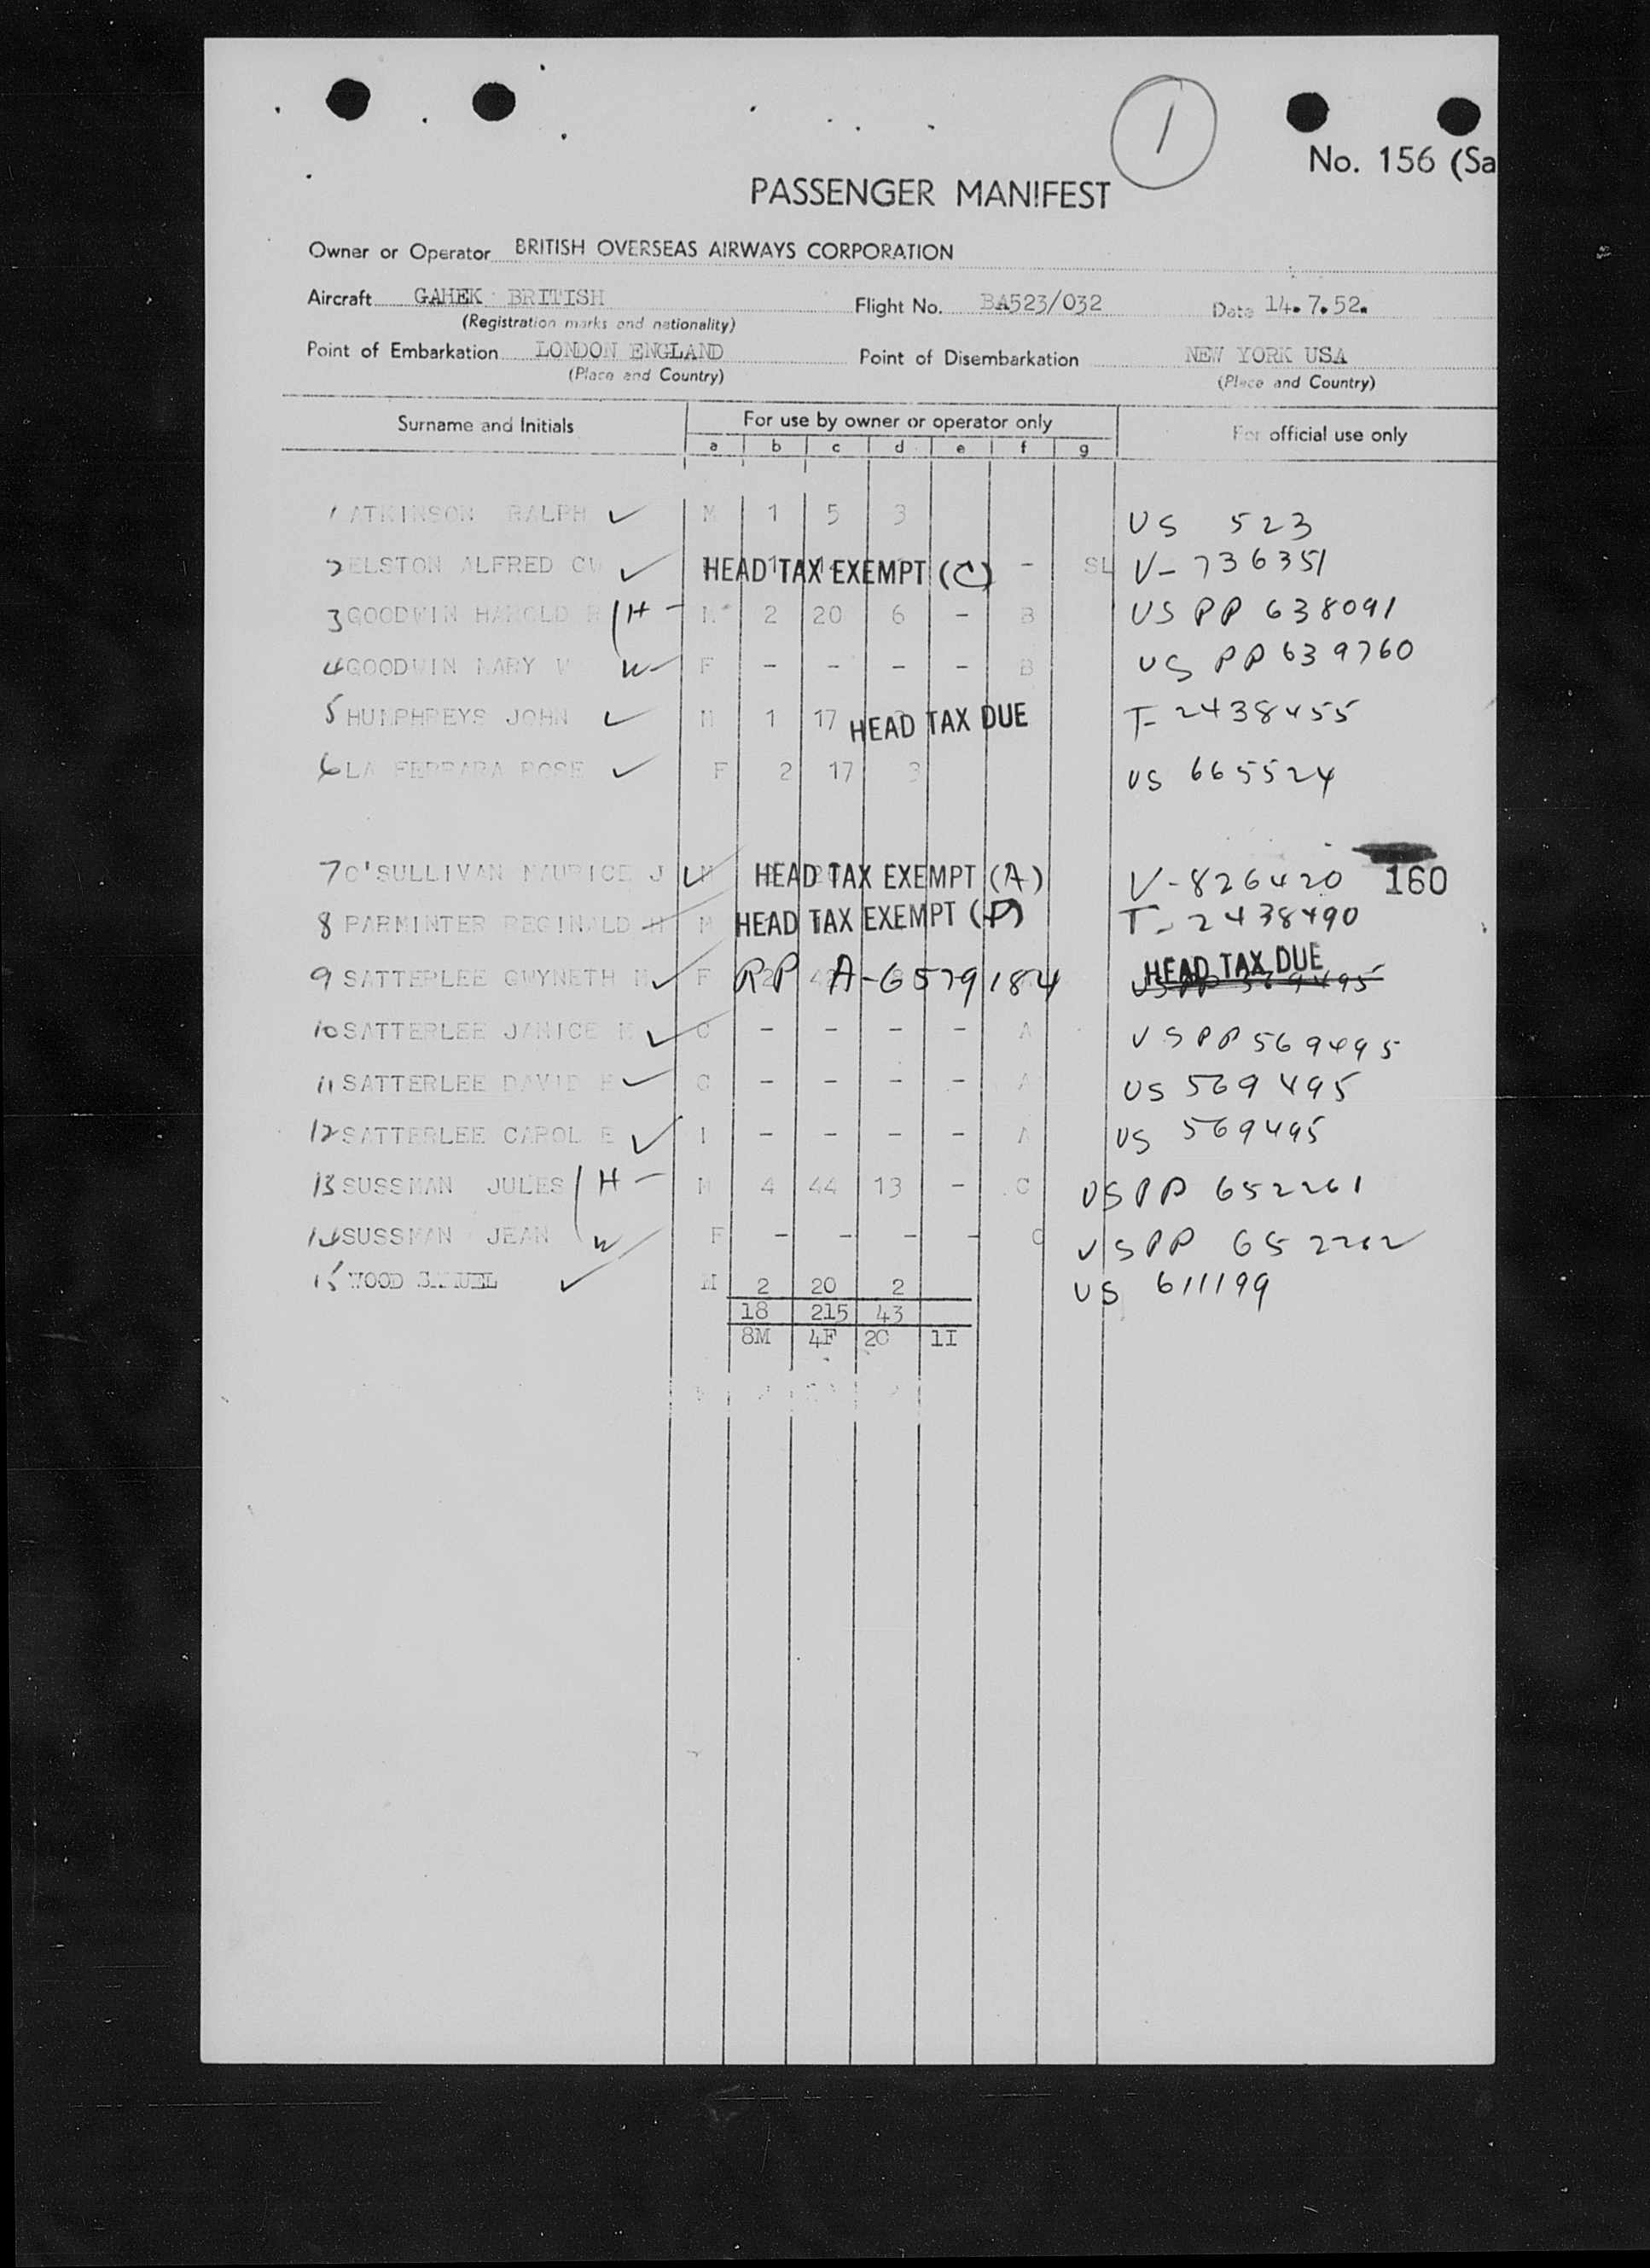 1
No. 156 (Sa
PASSENGER MANIFEST
Owner or Operator BRITISH OVERSEAS AIRWAYS CORPORATION
Aircraft GAHEK BRITISH Flight No. BA523/032 Date 14.7.52.
(Registration marks and nationality)
Point of Embarkation LONDON ENGLAND Point of Disembarkation NEW YORK USA
(Place and Country) (Place and Country)
Surname and Initials For use by owner or operator only For official use only
a b c d e f g
1 ATKINSON RALPH M 1 5 3 US 523
2 ELSTON ALFRED HEAD TAX EXEMPT (C) - SL V-736351
3 GOODWIN HAROLD H M 2 20 6 - B US PP 638091
4 GOODWIN MARY W W F - - - - B US PP 639760
5 HUMPHREYS JOHN M 1 17 HEAD TAX DUE T-2438455
6 LA FERRARA ROSE F 2 17 3 US 665524
7 O'SULLIVAN MAURICE J M HEAD TAX EXEMPT (A) V-826420 160
8 PARMINTER REGINALD H M HEAD TAX EXEMPT (P) T-2438490
9 SATTERLEE GWYNETH M F RP A-6579184 HEAD TAX DUE US PP 569495
10 SATTERLEE JANICE M C - - - - A US PP 569495
11 SATTERLEE DAVID E C - - - - A US 569495
12 SATTERLEE CAROL E I - - - - A US 569495
13 SUSSMAN JULES H M 4 44 13 - C US PP 652261
14 SUSSMAN JEAN W F - - - - C US PP 652262
15 WOOD SAMUEL M 2 20 2 US 611199
18 215 43
8M 4F 2C 1I